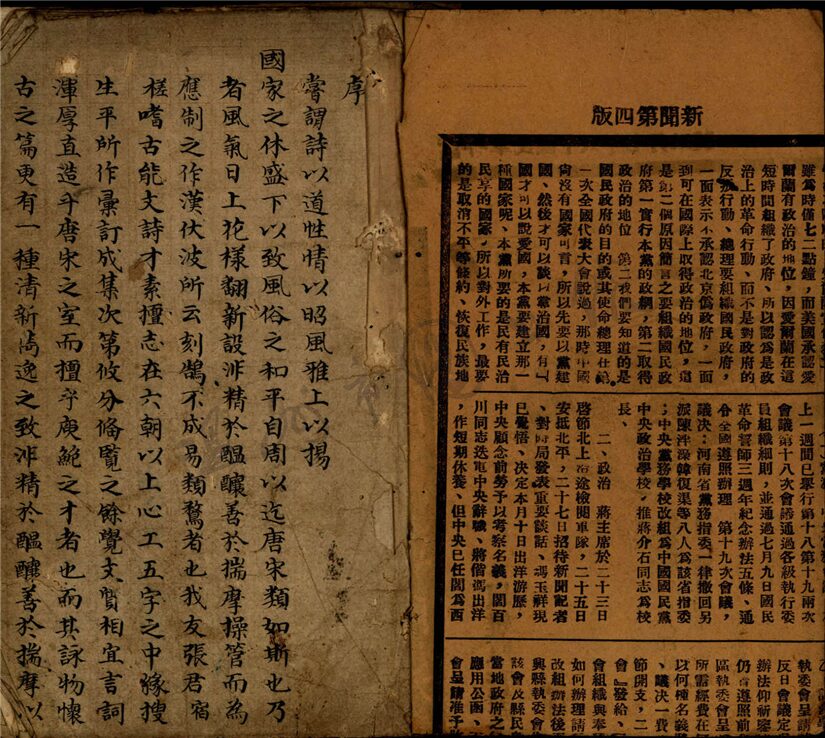 新聞第四版
雖爲時僅七二點鐘，而美國承認愛
爾蘭有政治的地位，因愛爾蘭在這
短時間組織了政府、所以認爲是政
治上的革命行動、而不是對政府的
反叛行動、總理要組織國民政府，
一面表示不承認北京僞政府，一面
到可在國際上取得政治的地位，這
是第二個原因簡言之要組織國民政
府第一實行本黨的政綱，第二取得
政治的地位　第二我們要知道的是
國民政府的目的或其使命總理在第
一次全國代表大會說過，那時中國
尙沒有國家可言，所以先要以黨建
國、然後才可以談以黨治國，有了
國才可以說愛國，本黨要建立那一
種國家呢、本黨所要的是民有民治
民享的國家，所以對外工作，最要
的是取消不平等條約、恢復民族地
上一週間已舉行第十八第十九兩次
會議第十八次會議通過各級執行委
員組織細則，並通過七月九日國民
革命誓師三週年紀念辦法五條、通
令全國遵照辦理　第十九次會議，
議决：河南省黨務指委一律撤回另
派陳泮韓復榘等八人爲該省指委
；中央黨務學校改組爲中國國民黨
中央政治學校，推蔣介石同志爲校
長、
二、政治　蔣主席於二十三日
啓節北上沿途檢閱軍隊，二十五日
安抵北平，二十七日招待新聞記者
、對時局發表重要談話、馮玉祥現
已覺悟、决定本月十日出洋游歷，
中央顧念前勞予以考察名義，閻百
川同志迭電中央辭職、將偕馮出洋
，作短期休養、但中央已任閻爲西
執委會呈請
反日會議定
辦法仰祈鑒
仍舊遵照前
區執委會呈
所需經費在
以何種名義
、議決一費
節開支，二
會』發給、
會組織與奉
如何辦理請
改組辦法後
興縣執委會
該會及縣民
當地政府之
應用公函、
會呈請准予
序
嘗謂詩以道性情以昭風雅上以揚
國家之休盛下以致風俗之和平自周以迄唐宋類如斯也乃
者風氣日上花樣翻新設非精於醞釀善於揣摩操管而為
應制之作漢伏波所云刻鵠不成易類鶩者也我友張君宿
槎嗜古能文詩才素擅志在六朝以上心工五字之中緣搜
生平所作彙訂成集次第攸分偹覧之餘覺文質相宜言詞
渾厚直造乎唐宋之室而擅乎庾鮑之才者也而其詠物懷
古之篇更有一種清新俊逸之致非精於醞釀善於揣摩以